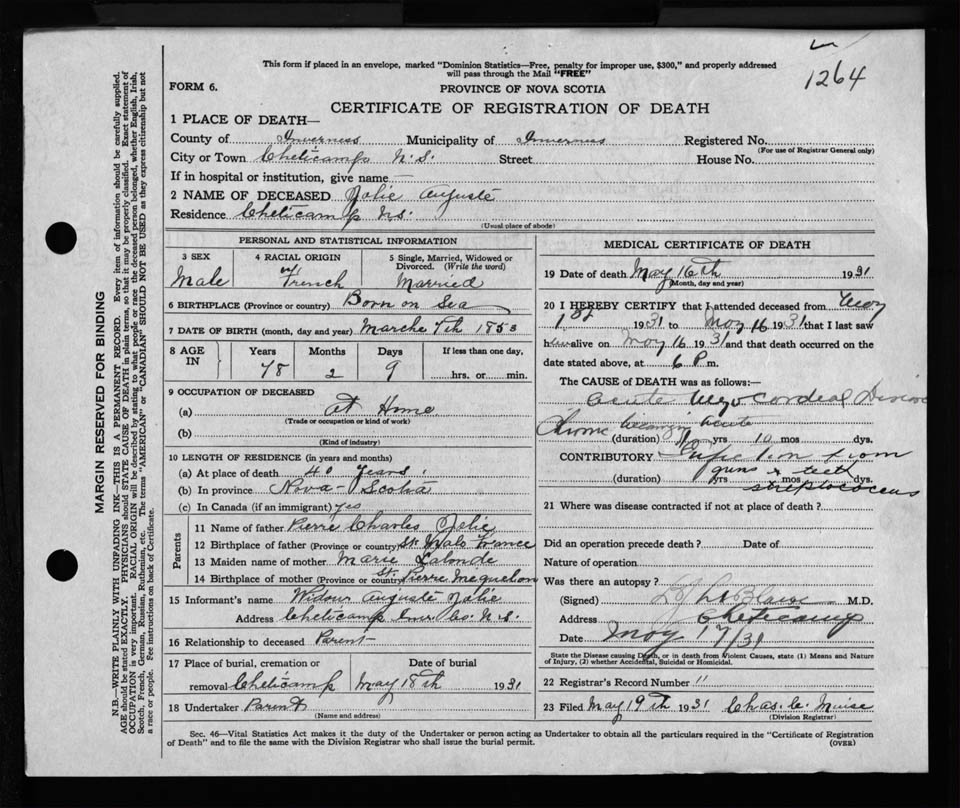 1264
This form if placed in an envelope, marked "Dominion Statistics—Free, penalty for improper use, $300," and properly addressed
will pass through the Mail "FREE"
FORM 6.
PROVINCE OF NOVA SCOTIA
CERTIFICATE OF REGISTRATION OF DEATH
1 PLACE OF DEATH—
County of Inverness Municipality of Inverness Registered No.
(For use of Registrar General only)
City or Town Cheticamp N.S. Street House No.
If in hospital or institution, give name —
2 NAME OF DECEASED Jolie Auguste
Residence Cheticamp N.S.
(Usual place of abode)
PERSONAL AND STATISTICAL INFORMATION
3 SEX
Male
4 RACIAL ORIGIN
French
5 Single, Married, Widowed or
Divorced. (Write the word)
Married
6 BIRTHPLACE (Province or country) Born on Sea
7 DATE OF BIRTH (month, day and year) Marche 7th 1853
8 AGE IN
Years Months Days If less than one day,
78 2 9 hrs. or min.
9 OCCUPATION OF DECEASED
(a) At Home
(Trade or occupation or kind of work)
(b)
(Kind of industry)
10 LENGTH OF RESIDENCE (in years and months)
(a) At place of death 40 years.
(b) In province Nova-Scotia
(c) In Canada (if an immigrant) yes
Parents
11 Name of father Pierre Charles Jolie
12 Birthplace of father (Province or country) St Malo France
13 Maiden name of mother Marie Lalonde
14 Birthplace of mother (Province or country) St. Pierre Mequelon
15 Informant's name Widow Auguste Jolie
Address Cheticamp Inv. Co. N.S.
16 Relationship to deceased Parent
17 Place of burial, cremation or Date of burial
removal Cheticamp May 18th 1931
18 Undertaker Parent
(Name and address)
MEDICAL CERTIFICATE OF DEATH
19 Date of death May 16th 1931
(Month, day and year)
20 I HEREBY CERTIFY that I attended deceased from May
1st 1931 to May 16 1931 that I last saw
him alive on May 16 1931 and that death occurred on the
date stated above, at 6 P m.
The CAUSE of DEATH was as follows:
Acute Myocordeal Disease
becoming acute
(duration) yrs 10 mos dys.
CONTRIBUTORY Infection from
gums & teeth
(duration) yrs mos dys.
streptococcus
21 Where was disease contracted if not at place of death?
Did an operation precede death? Date of
Nature of operation
Was there an autopsy?
(Signed) M.D.
Address Cheticamp
Date May 17/31
State the Disease causing Death, or in death from Violent Causes, state (1) Means and Nature
of Injury, (2) whether Accidental, Suicidal or Homicidal.
22 Registrar's Record Number 11
23 Filed May 19th 1931 Chas. C. Muise
(Division Registrar)
Sec. 46—Vital Statistics Act makes it the duty of the Undertaker or person acting as Undertaker to obtain all the particulars required in the "Certificate of Registration
of Death" and to file the same with the Division Registrar who shall issue the burial permit.
(OVER)
MARGIN RESERVED FOR BINDING
N.B.—WRITE PLAINLY WITH UNFADING INK—THIS IS A PERMANENT RECORD. Every item of information should be carefully supplied.
AGE should be stated EXACTLY. PHYSICIANS should STATE CAUSE OF DEATH in plain terms, so that it may be properly classified. Exact statement of
OCCUPATION is very important. RACIAL ORIGIN will be described by stating to what people or race the deceased person belonged, whether English, Irish,
Scotch, French, German, Russian, Ruthenian, etc. The terms "AMERICAN" or "CANADIAN" SHOULD NOT BE USED as they express citizenship but not
a race or people. Fee instructions on back of Certificate.